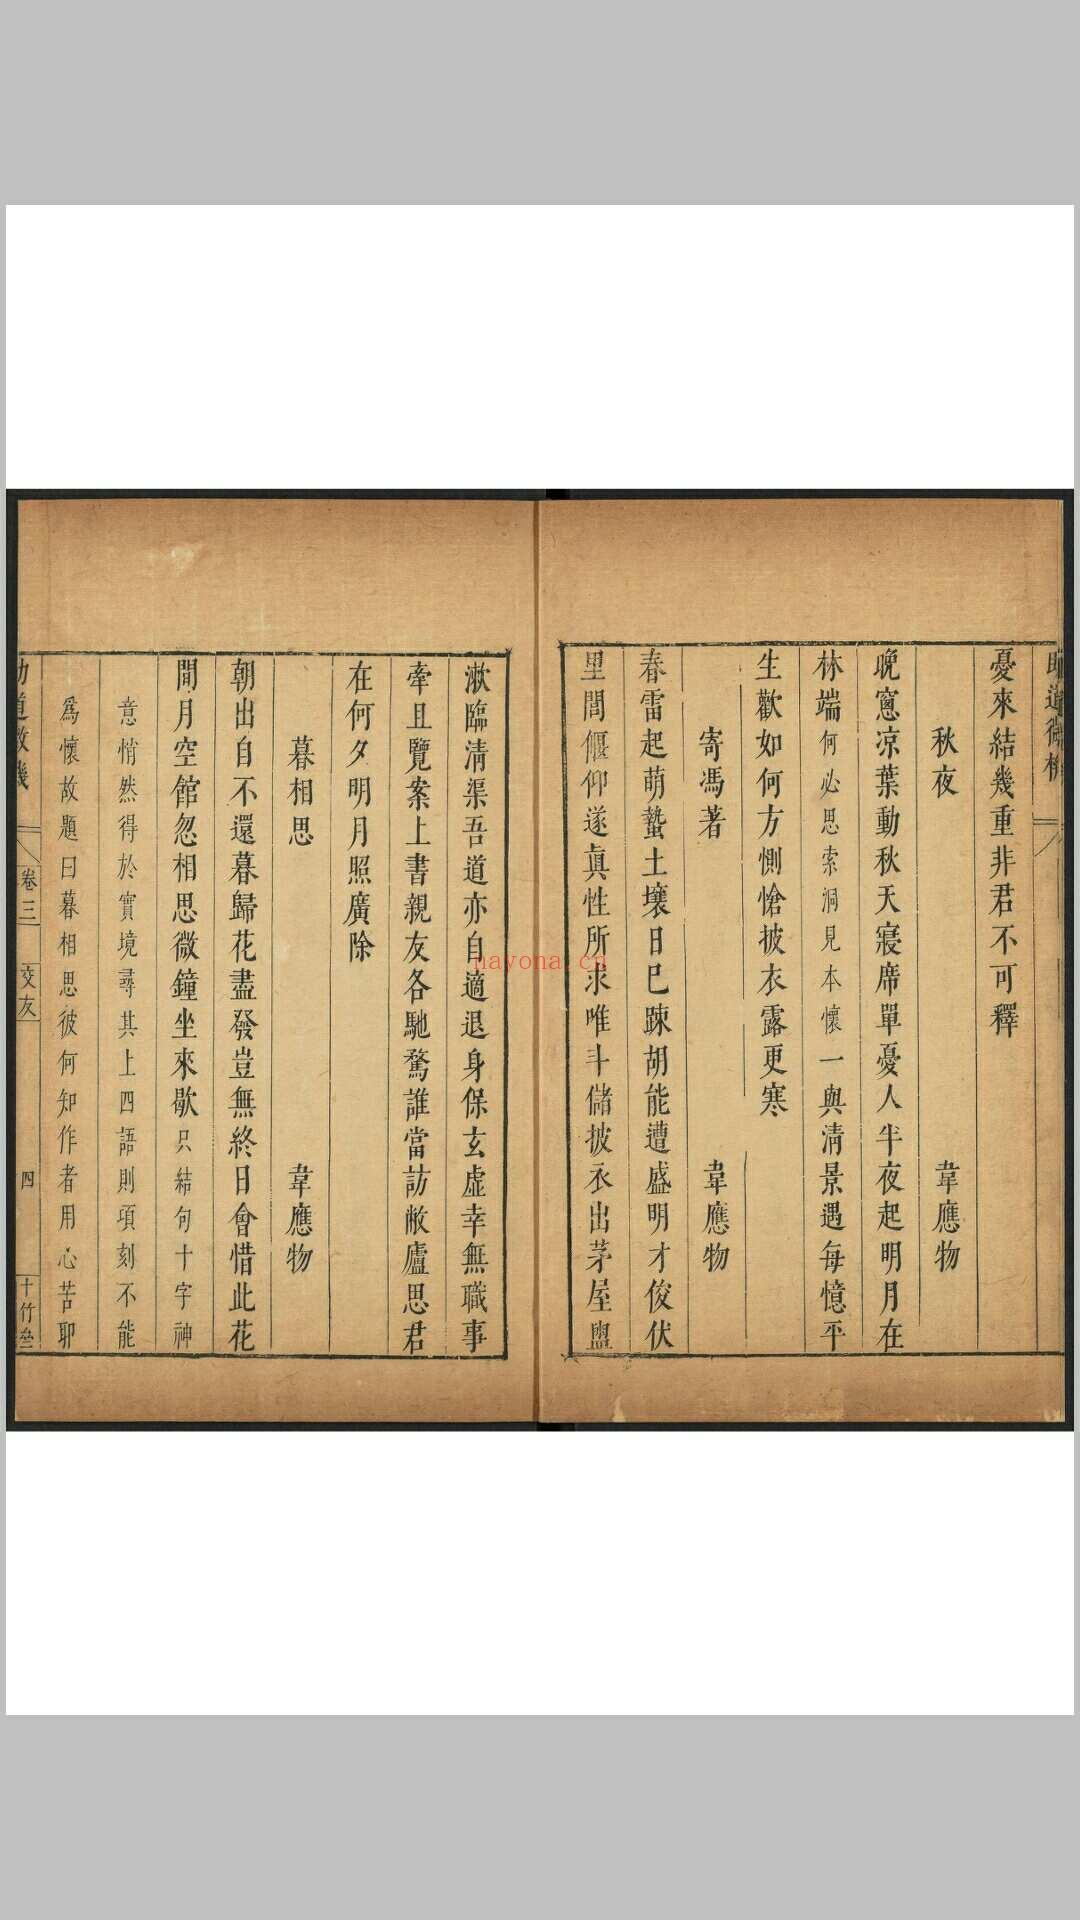 憂來結幾重非君不可釋
秋夜 韋應物
晚窻凉葉動秋天寢席單憂人半夜起明月在
林端何必思索洞見本懷一與清景遇每憶平
生歡如何方惻愴披衣露更寒
寄馮著 韋應物
春雷起萌蟄土壤日已踈胡能遭盛明才俊伏
里閭偃仰遂真性所求唯斗儲披衣出茅屋盥
漱臨清渠吾道亦自適退身保玄虛幸無職事
牽且覽案上書親友各馳騖誰當訪敝廬思君
在何夕明月照廣除
暮相思 韋應物
朝出自不還暮歸花盡發豈無終日會惜此花
間月空館忽相思微鐘坐來歇只結句十字神
意悄然得於實境尋其上四語則項刻不能
爲懷故題曰暮相思彼何知作者用心苦耶
卷三 交友 四
nayona.cn